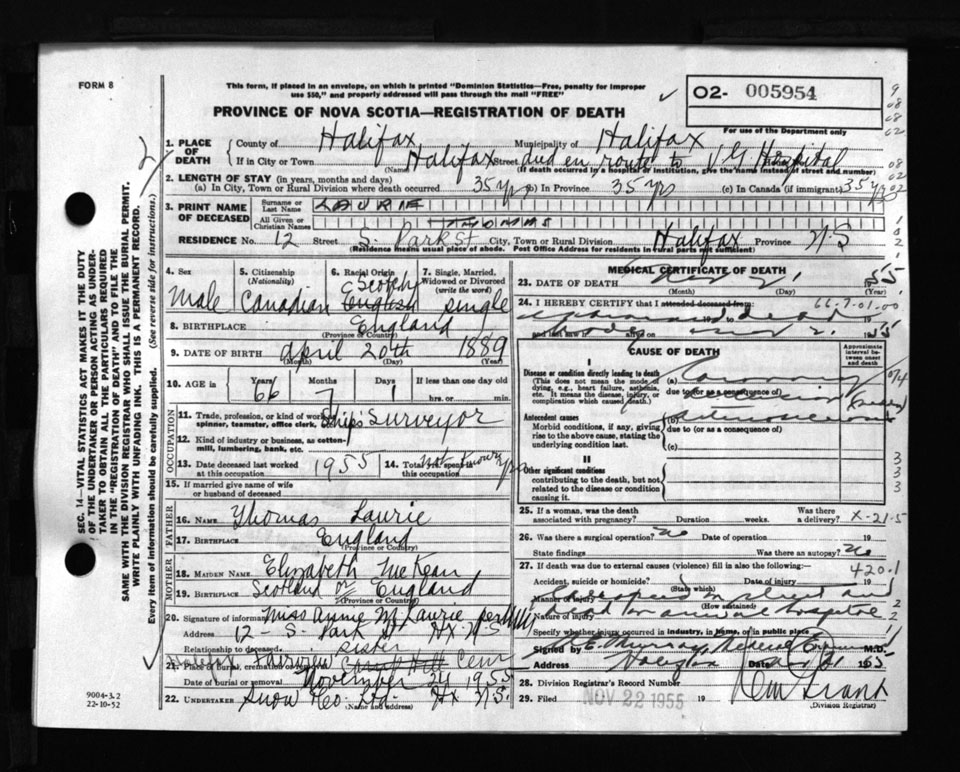 FORM 8
This form, if placed in an envelope, on which is printed "Dominion Statistics—Free, penalty for improper
use $50," and properly addressed will pass through the mail "FREE"
PROVINCE OF NOVA SCOTIA—REGISTRATION OF DEATH
O2- 005954
For use of the Department only
1. PLACE OF DEATH
County of Halifax Municipality of Halifax
If in City or Town Halifax Street died en route to V G Hospital
(Name) (If death occurred in a hospital or institution, give the name instead of street and number)
2. LENGTH OF STAY (in years, months and days)
(a) In City, Town or Rural Division where death occurred 35 yrs (b) in Province 35 yrs (c) In Canada (if immigrant) 35 yrs
3. PRINT NAME OF DECEASED
Surname or Last Name LAURIE
All Given or Christian Names THOMAS
RESIDENCE No. 12 Street S. Park St City, Town or Rural Division Halifax Province N S
(Residence means usual place of abode. Post Office Address for residents in rural parts not sufficient)
4. Sex
Male
5. Citizenship
(Nationality)
Canadian
6. Racial Origin
Scotch
English
7. Single, Married,
Widowed or Divorced
(write the word)
single
8. BIRTHPLACE England
(Province or Country)
9. DATE OF BIRTH April 20th 1889
(Month) (Day) (Year)
10. AGE in
Years 66
Months 7
Days 1
If less than one day old
hrs. or min.
OCCUPATION
11. Trade, profession, or kind of work as
spinner, teamster, office clerk, Ship's Surveyor
12. Kind of industry or business, as cotton-
mill, lumbering, bank, etc.
13. Date deceased last worked
at this occupation 1955
14. Total yrs. spent in
this occupation Not known yrs
15. If married give name of wife
or husband of deceased
FATHER
16. NAME Thomas Laurie
17. BIRTHPLACE England
(Province or Country)
MOTHER
18. MAIDEN NAME Elizabeth McKean
19. BIRTHPLACE Scotland or England
(Province or Country)
20. Signature of informant Miss Annie M Laurie per
Address 12 - S. Park St Hx N S
Relationship to deceased sister
21. Place of burial, cremation or Halifax Fairview Cem
Date of burial or removal November 24 1955
22. UNDERTAKER Snow & Co. Ltd. Hx N.S.
(Name and address)
MEDICAL CERTIFICATE OF DEATH
23. DATE OF DEATH 1955
(Month) (Day)
24. I HEREBY CERTIFY that I attended deceased from: 66-7-01-00
19
and last saw h alive on 1955
CAUSE OF DEATH
Approximate
interval be-
tween onset
and death
I
Disease or condition directly leading to death
(This does not mean the mode of
dying, e.g., heart failure, asthenia,
etc. It means the disease, injury, or
complication which caused death.)
(a) Coronary
due to (or as a consequence of)
Antecedent causes
Morbid conditions, if any, giving
rise to the above cause, stating the
underlying condition last.
(b)
due to (or as a consequence of)
(c)
II
Other significant conditions
contributing to the death, but not
related to the disease or condition
causing it.
25. If a woman, was the death
associated with pregnancy? Duration weeks. Was there
a delivery? X-21-5
26. Was there a surgical operation? No Date of operation 19
State findings Was there an autopsy? No
27. If death was due to external causes (violence) fill in also the following: 420.1
Accident, suicide or homicide? Date of injury 19
(State which)
Manner of injury collapsed on street and
(How sustained)
Nature of injury dead on arrival hospital
Specify whether injury occurred in industry, in home, or in public place
Signed by E. Murray M.D.
Address Halifax Date 21 1955
28. Division Registrar's Record Number
29. Filed NOV 22 1955 19
(Division Registrar)
9004-3.2
22-10-52
SEC. 14—VITAL STATISTICS ACT MAKES IT THE DUTY
OF THE UNDERTAKER OR PERSON ACTING AS UNDER-
TAKER TO OBTAIN ALL THE PARTICULARS REQUIRED
IN THE "REGISTRATION OF DEATH" AND TO FILE THE
SAME WITH THE DIVISION REGISTRAR WHO SHALL ISSUE THE BURIAL PERMIT.
WRITE PLAINLY WITH UNFADING INK. THIS IS A PERMANENT RECORD.
Every item of information should be carefully supplied. (See reverse side for instructions.)